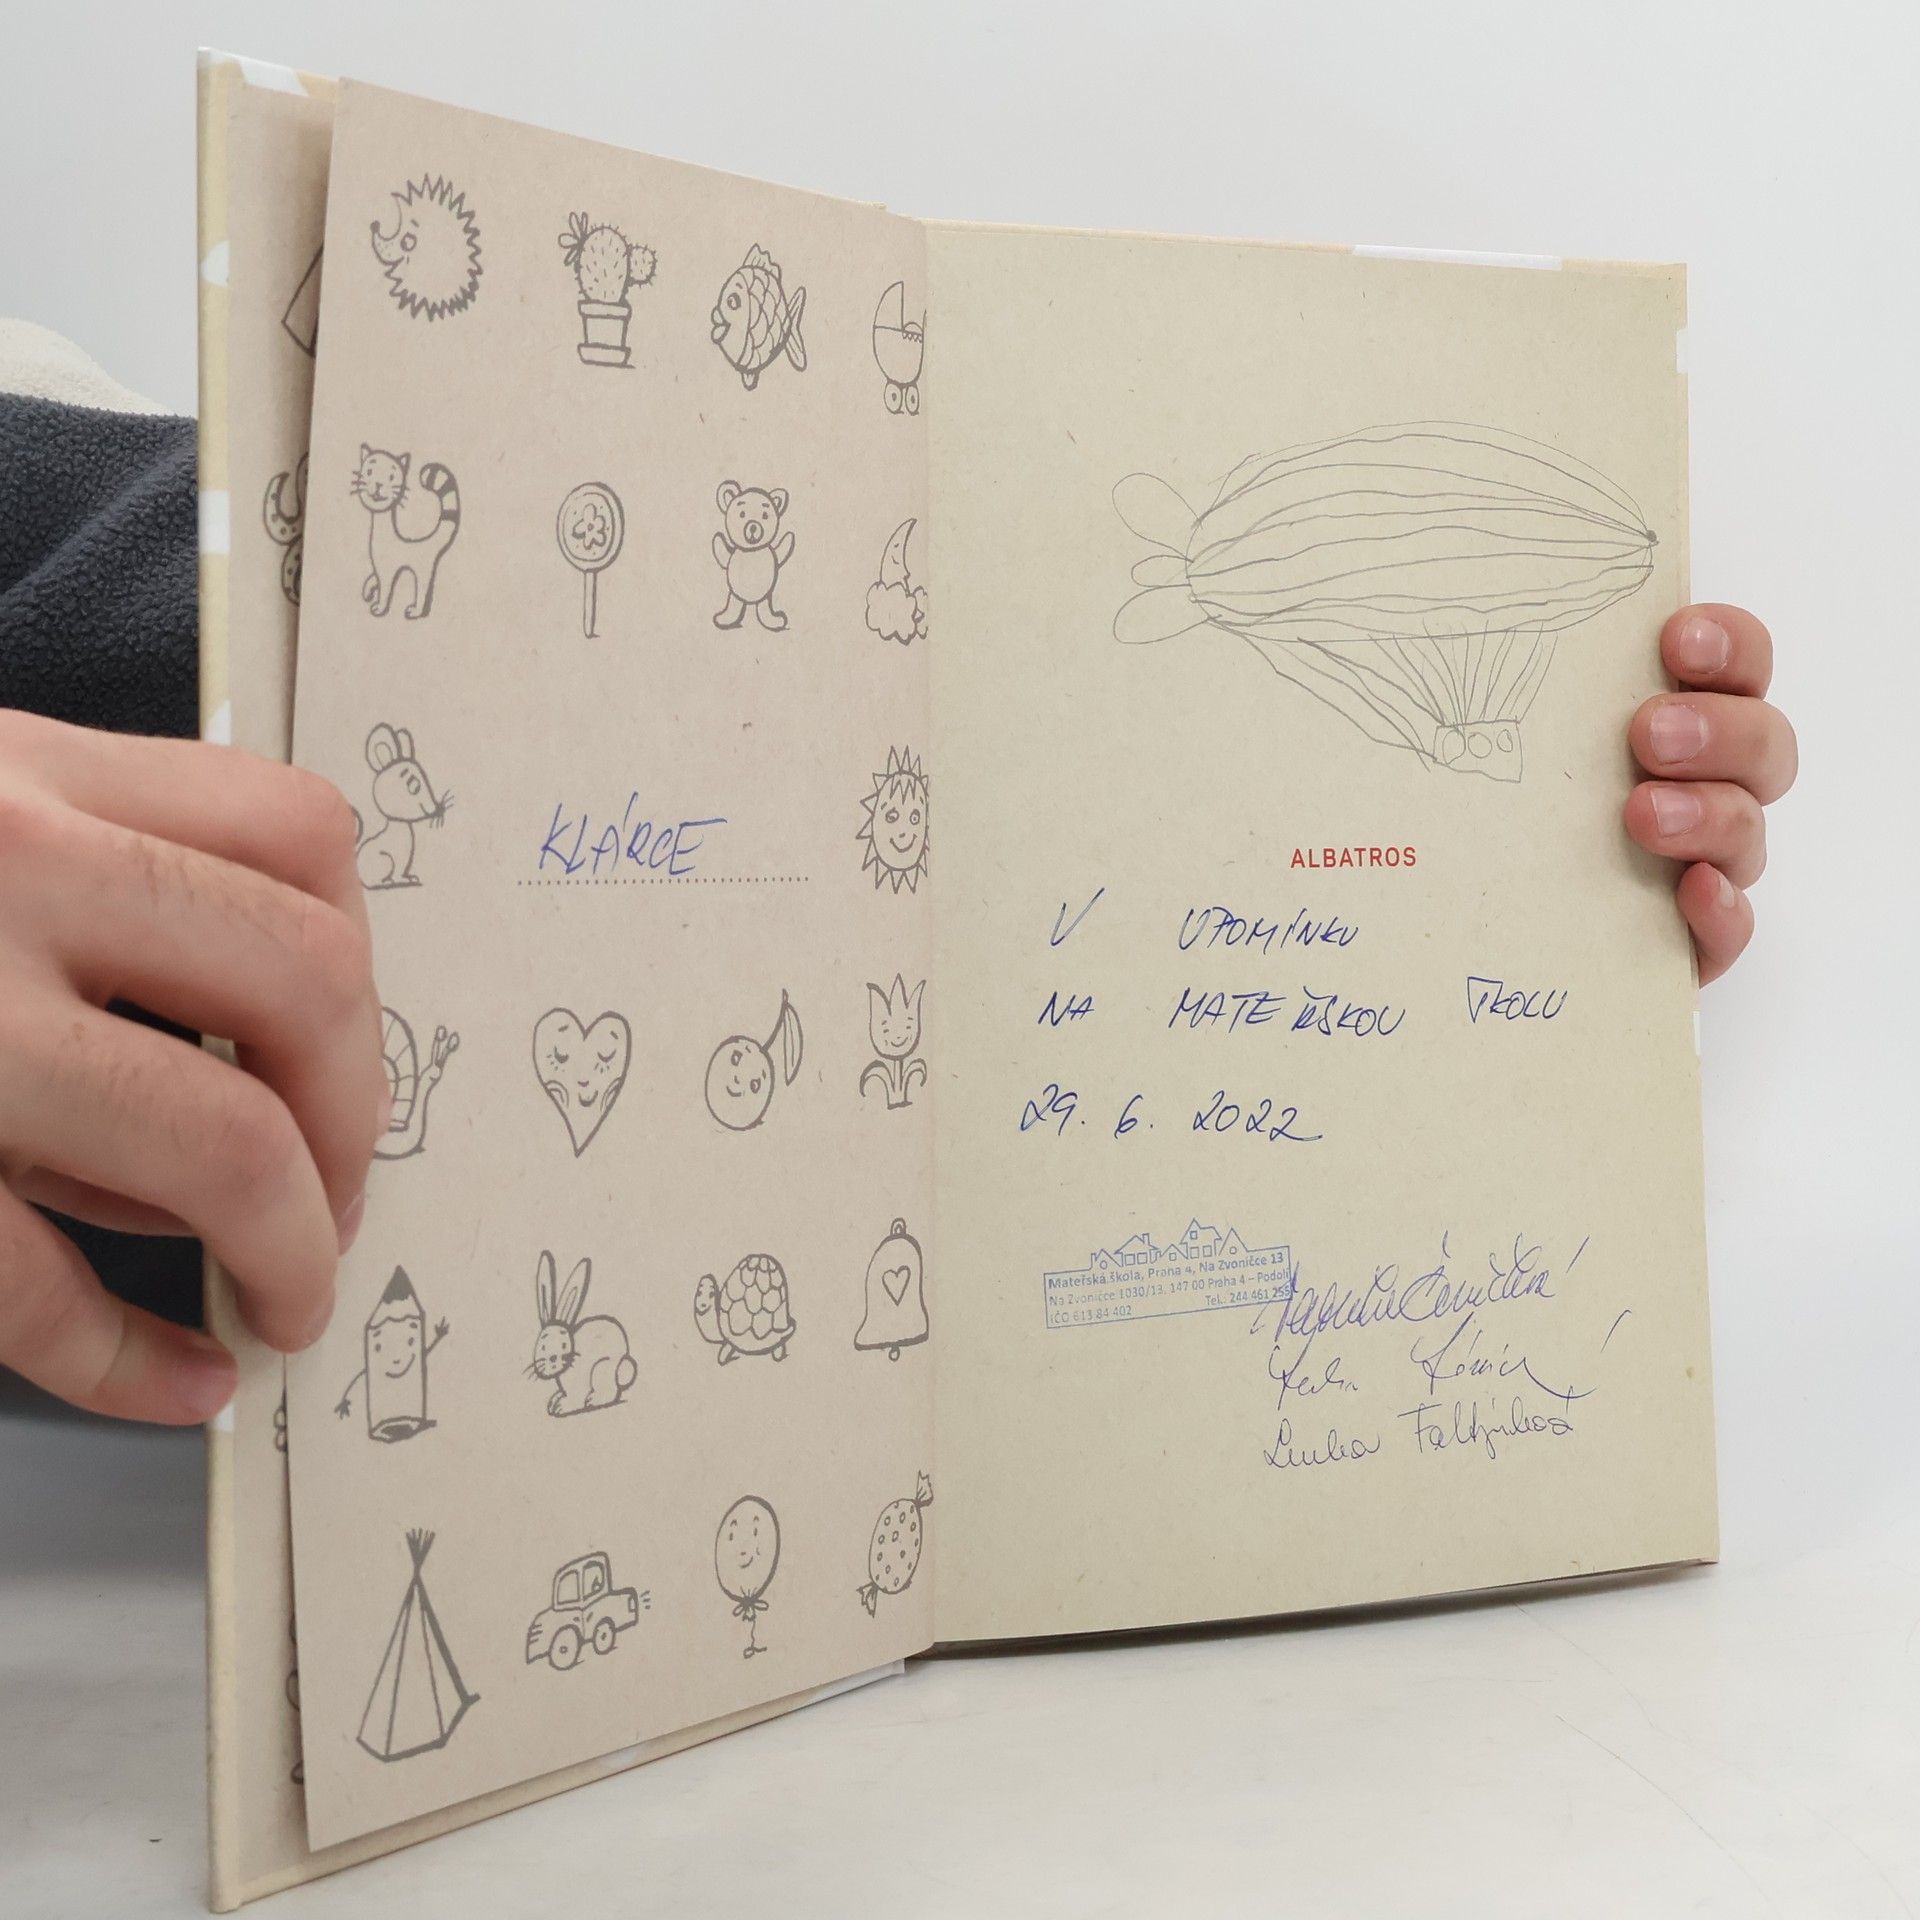 KLÁRCE
ALBATROS
V UPOMÍNKU
NA MATEŘSKOU ŠKOLU
29. 6. 2022
Mateřská škola, Praha 4, Na Zvoničce 13
Na Zvoničce 1030/13, 147 00 Praha 4 – Podolí
IČO 613 84 402 Tel.: 244 461 259
Lenka